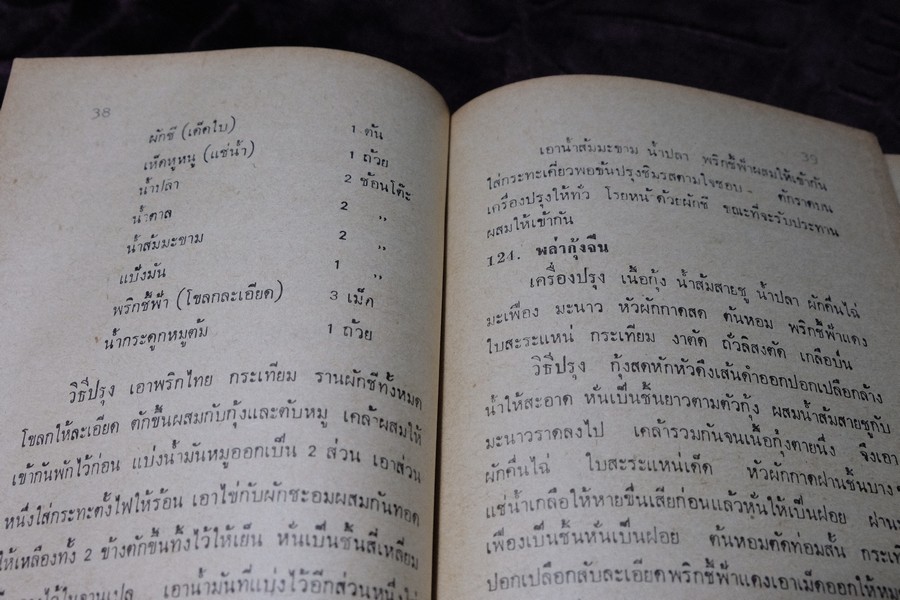 38
ผักชี (เด็ดใบ) 1 ต้น
เห็ดหูหนู (แช่น้ำ) 1 ถ้วย
น้ำปลา 2 ช้อนโต๊ะ
น้ำตาล 2 ,,
น้ำส้มมะขาม 2 ,,
แป้งมัน 1 ,,
พริกชี้ฟ้า (โขลกละเอียด) 3 เม็ด
น้ำกระดูกหมูต้ม 1 ถ้วย
วิธีปรุง เอาพริกไทย กระเทียม รานผักชีทั้งหมด
โขลกให้ละเอียด ตักขึ้นผสมกับกุ้งและตับหมู เคล้าผสมให้
เข้ากันพักไว้ก่อน แบ่งน้ำมันหมูออกเป็น 2 ส่วน เอาส่วน
หนึ่งใส่กระทะตั้งไฟให้ร้อน เอาไข่กับผักชะอมผสมกันทอด
ให้เหลืองทั้ง 2 ข้างตักขึ้นทิ้งไว้ให้เย็น หั่นเป็นชิ้นสี่เหลี่ยม
เอาน้ำมันที่แบ่งไว้อีกส่วนหนึ่งใส่
39
เอาน้ำส้มมะขาม น้ำปลา พริกชี้ฟ้าผสมให้เข้ากัน
ใส่กระทะเคี่ยวพอข้นปรุงชิมรสตามใจชอบ ตักราดบน
เครื่องปรุงให้ทั่ว โรยหน้าด้วยผักชี ขณะที่จะรับประทาน
ผสมให้เข้ากัน
124. พล่ากุ้งจีน
เครื่องปรุง เนื้อกุ้ง น้ำส้มสายชู น้ำปลา ผักคื่นไฉ่
มะเฟือง มะนาว หัวผักกาดสด ต้นหอม พริกชี้ฟ้าแดง
ใบสะระแหน่ กระเทียม งาคั่ว ถั่วลิสงคั่ว เกลือป่น
วิธีปรุง กุ้งสดหักหัวดึงเส้นดำออกปอกเปลือกล้าง
น้ำให้สะอาด หั่นเป็นชิ้นยาวตามตัวกุ้ง ผสมน้ำส้มสายชูกับ
มะนาวราดลงไป เคล้ารวมกันจนเนื้อกุ้งตายนึ่ง จึงเอา
ผักคื่นไฉ่ ใบสะระแหน่เด็ด หัวผักกาดฝานชิ้นบาง
แช่น้ำเกลือให้หายขื่นเสียก่อนแล้วหั่นให้เป็นฝอย ฝาน
เฟืองเป็นชิ้นหั่นเป็นฝอย ต้นหอมตัดท่อมสั้น
ปอกเปลือกสับละเอียดพริกชี้ฟ้าแดงเอาเม็ดออกให้หมด